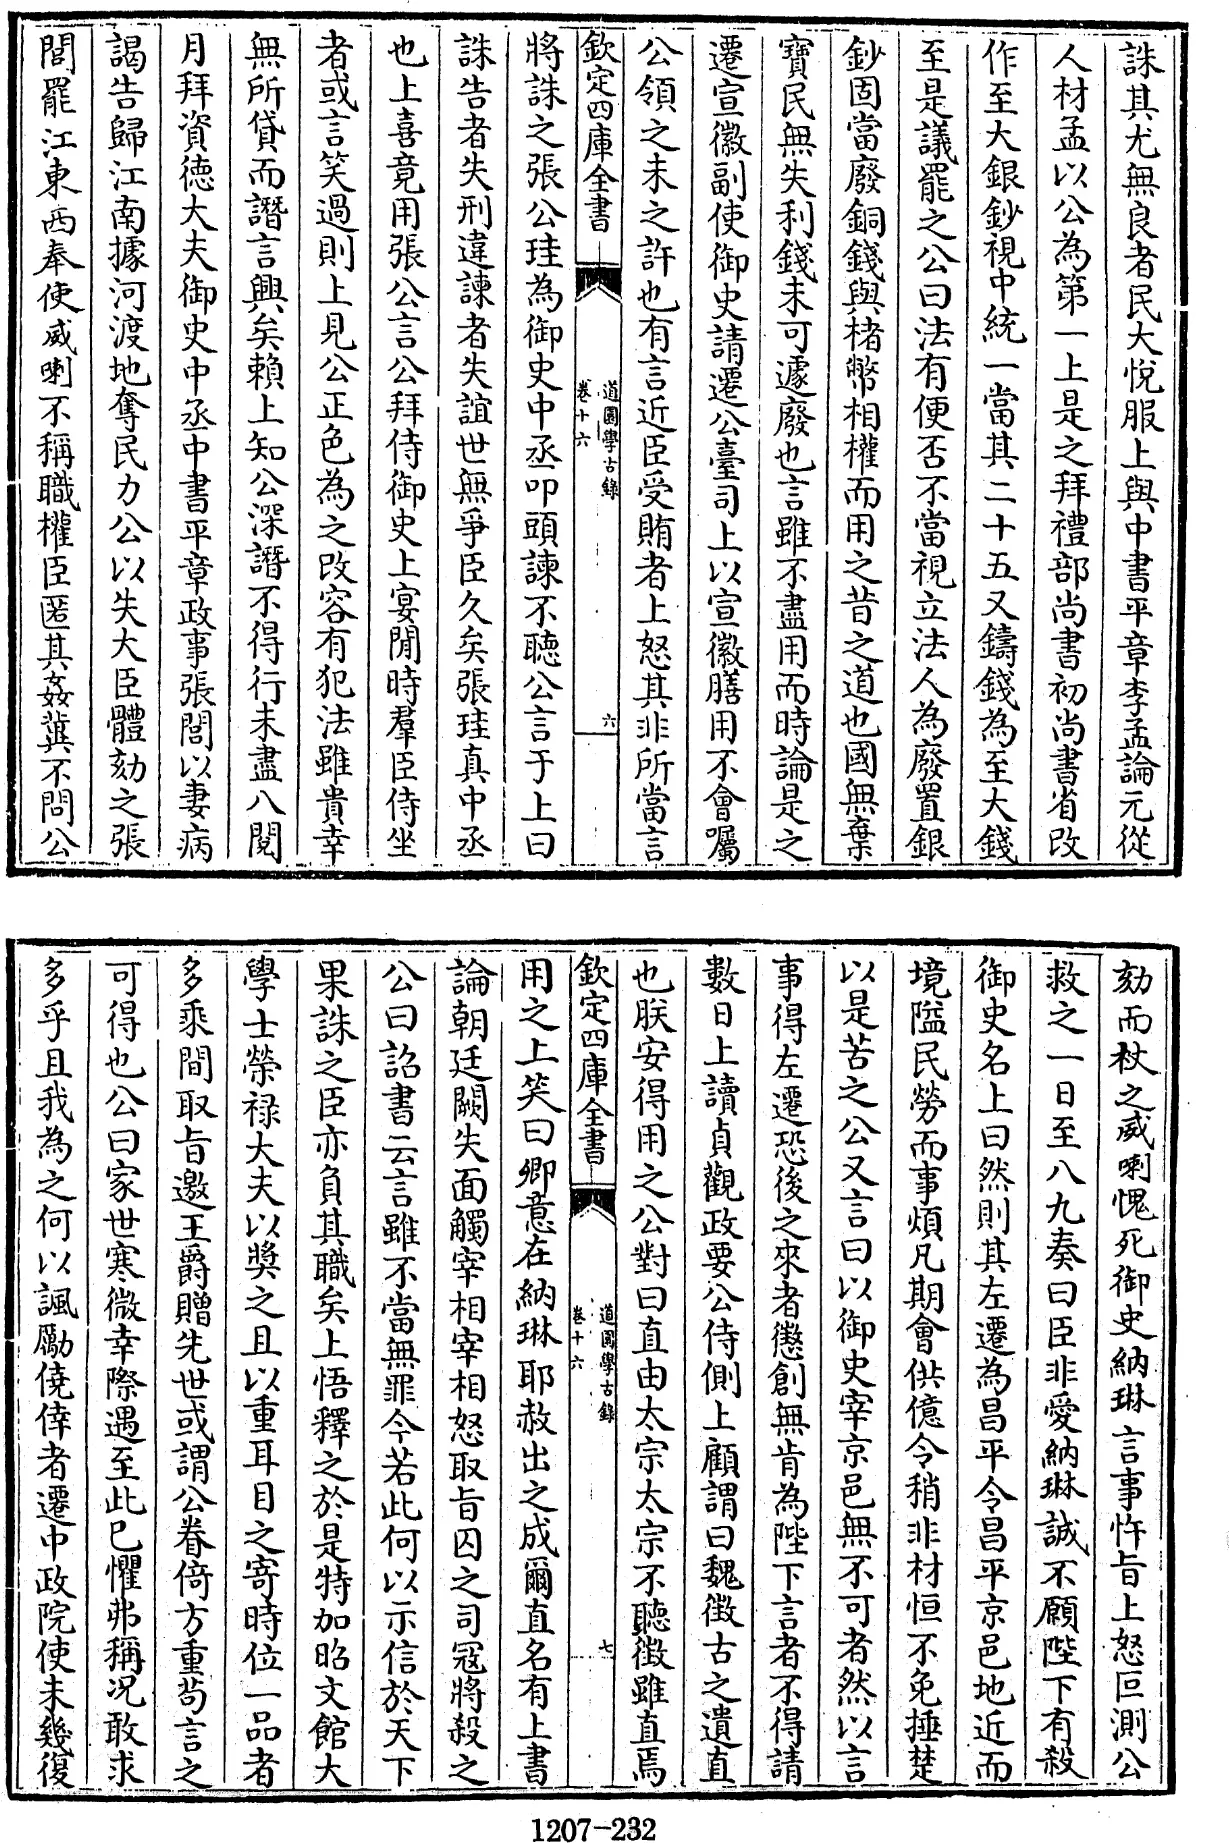 誅其尤無良者民大悅服上與中書平章李孟論元從
人材孟以公為第一上是之拜禮部尚書初尚書省改
作至大銀鈔視中統一當其二十五又鑄錢為至大錢
至是議罷之公曰法有便否不當視立法人為廢置銀
鈔固當廢銅錢與楮幣相權而用之昔之道也國無棄
寶民無失利錢未可遽廢也言雖不盡用而時論是之
遷宣徽副使御史請遷公臺司上以宣徽膳用不會囑
公領之未之許也有言近臣受賄者上怒其非所當言
欽定四庫全書
道園學古錄
卷十六
六
將誅之張公珪為御史中丞叩頭諫不聽公言于上曰
誅告者失刑違諫者失誼世無爭臣久矣張珪真中丞
也上喜竟用張公言公拜侍御史上宴閒時羣臣侍坐
者或言笑過則上見公正色為之改容有犯法雖貴幸
無所貸而譖言興矣賴上知公深譖不得行未盡八閱
月拜資德大夫御史中丞中書平章政事張閭以妻病
謁告歸江南據河渡地奪民力公以失大臣體劾之張
閭罷江東西奉使威喇不稱職權臣匿其姦冀不問公
劾而杖之威喇愧死御史納琳言事忤旨上怒叵測公
救之一日至八九奏曰臣非愛納琳誠不願陛下有殺
御史名上曰然則其左遷為昌平令昌平京邑地近而
境隘民勞而事煩凡期會供億令稍非材恒不免捶楚
以是苦之公又言曰以御史宰京邑無不可者然以言
事得左遷恐後之來者懲創無肯為陛下言者不得請
數日上讀貞觀政要公侍側上顧謂曰魏徵古之遺直
也朕安得用之公對曰直由太宗太宗不聽徵雖直焉
欽定四庫全書
道園學古錄
卷十六
七
用之上笑曰卿意在納琳耶赦出之成爾直名有上書
論朝廷闕失面觸宰相宰相怒取旨囚之司寇將殺之
公曰詔書云言雖不當無罪今若此何以示信於天下
果誅之臣亦負其職矣上悟釋之於是特加昭文館大
學士榮祿大夫以奬之且以重耳目之寄時位一品者
多乘間取旨邀王爵贈先世或謂公眷倚方重茍言之
可得也公曰家世寒微幸際遇至此已懼弗稱况敢求
多乎且我為之何以諷勵僥倖者遷中政院使未幾復
1207-232